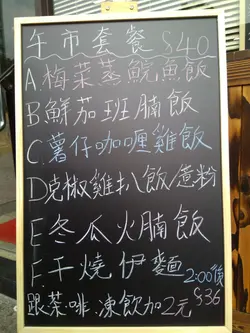 午市套餐 $40
A.梅菜蒸鯇魚飯
B.鮮茄班腩飯
C.薯仔咖喱雞飯
D.克椒雞扒飯/意粉
E.冬瓜火腩飯
F.干燒伊麵 2:00後
跟茶.啡.凍飲加2元 $36